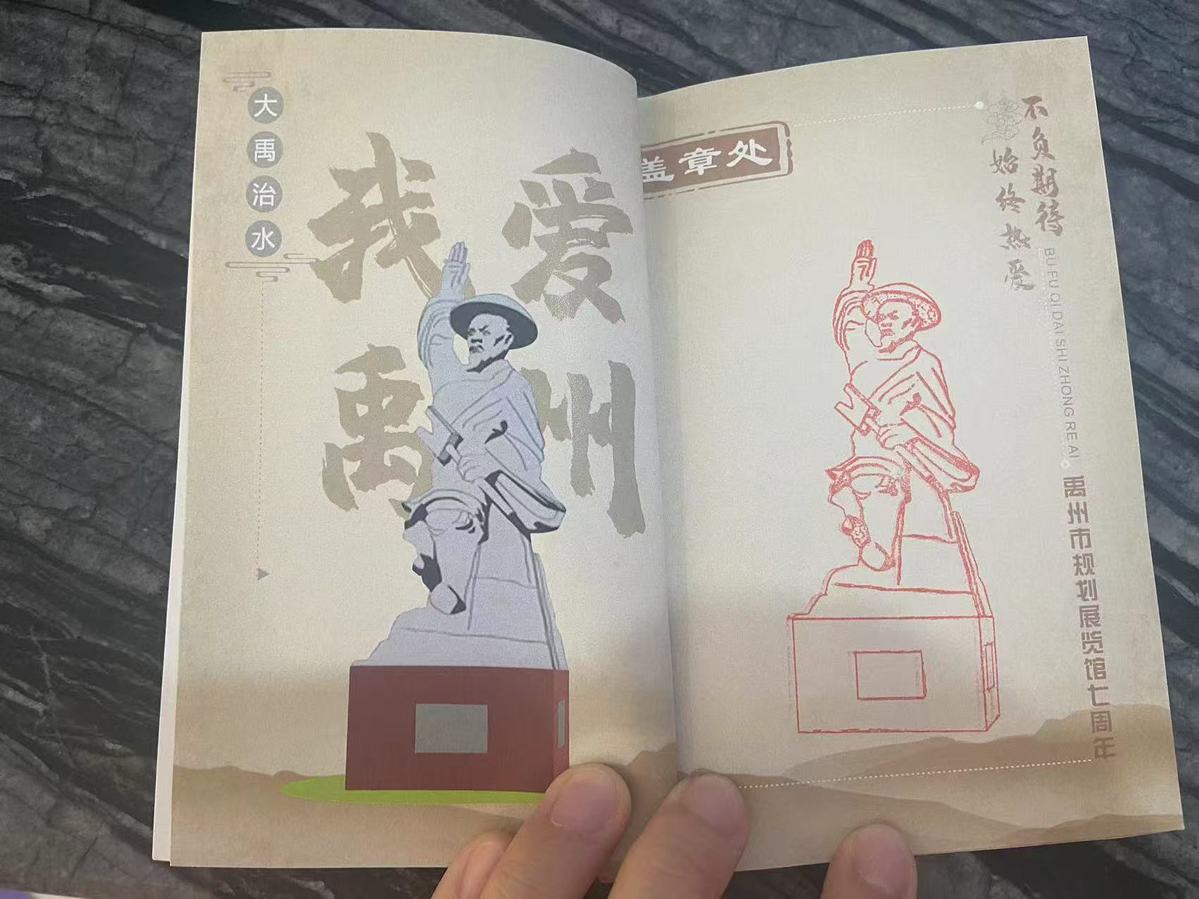 大禹治水
我爱
禹州
盖章处
不负期待
始终热爱
BU FU QI DAI SHI ZHONG RE AI
禹州市规划展览馆七周年